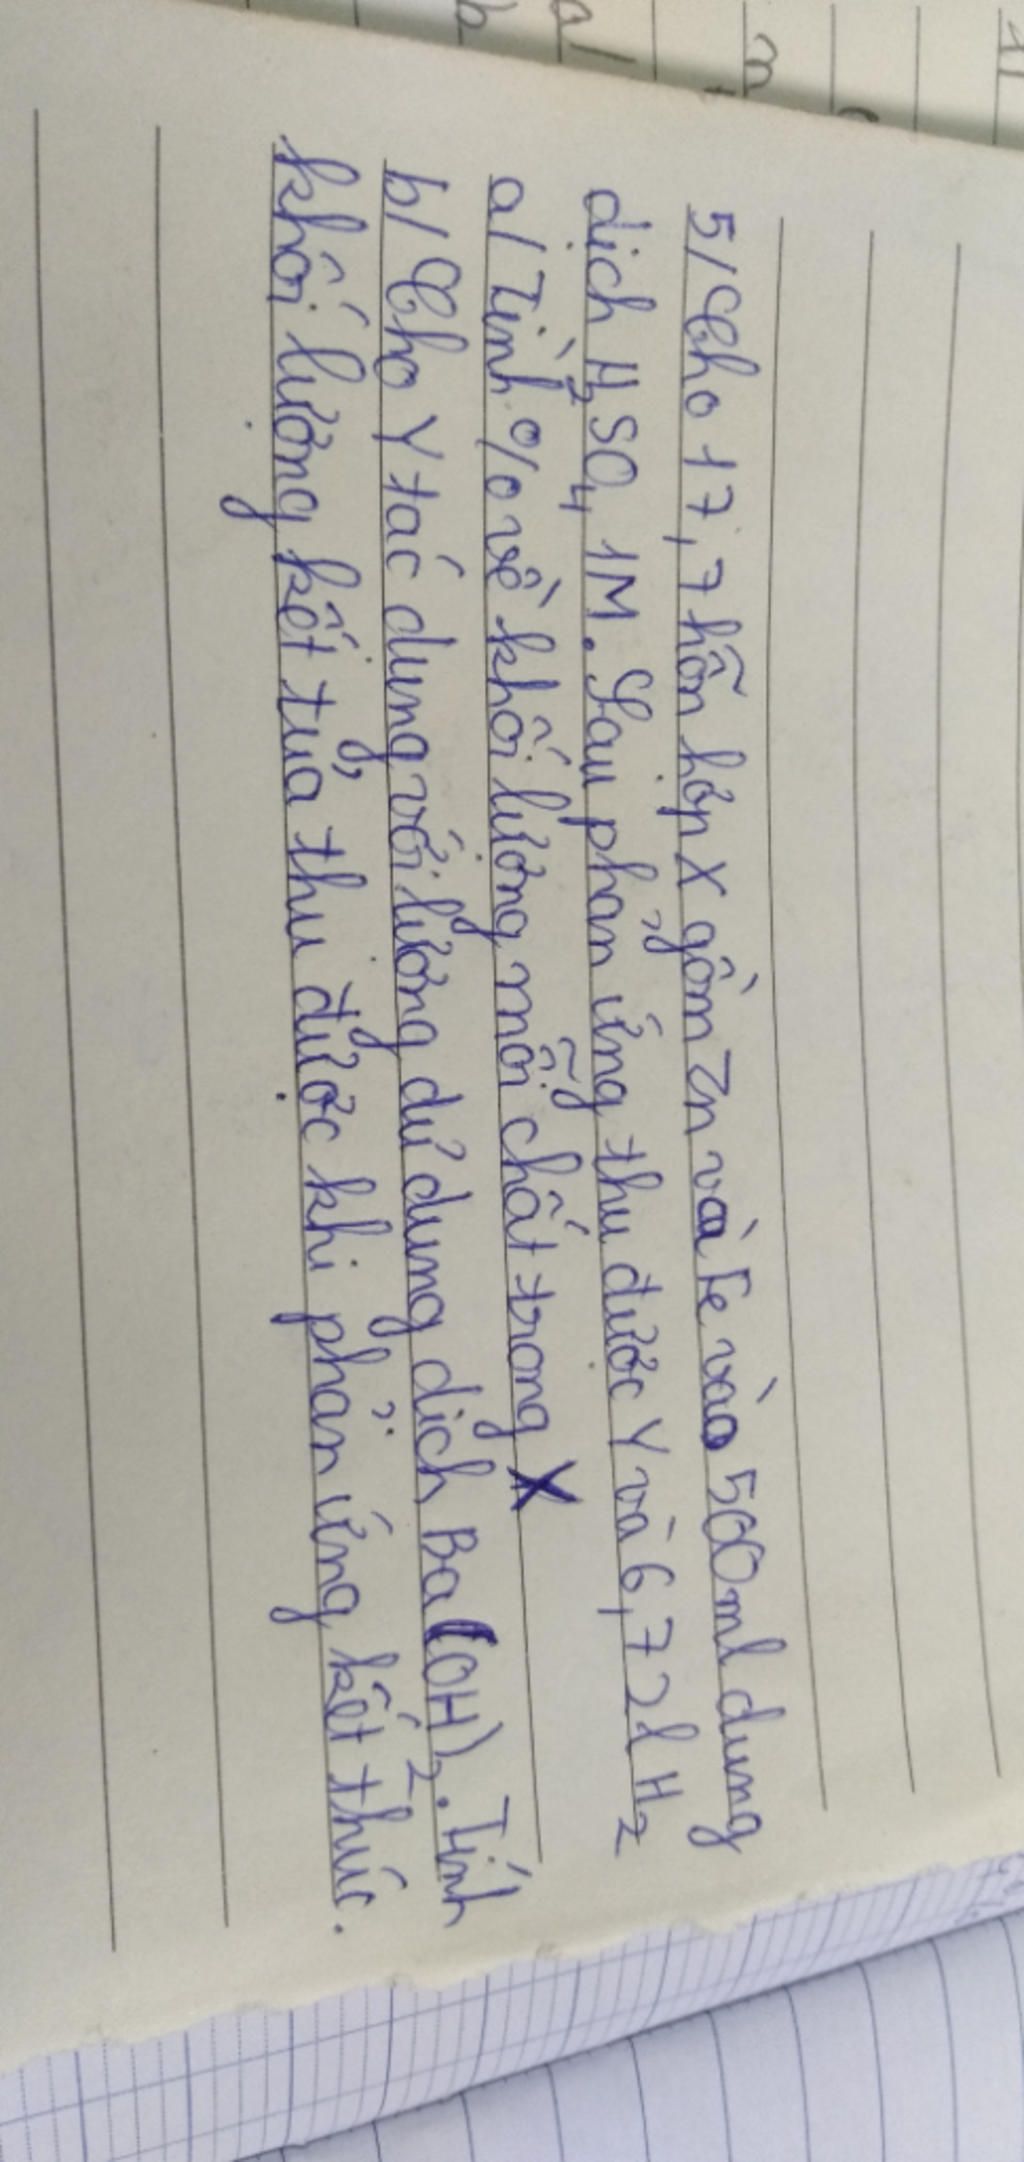 5/ Cho 17,7 hỗn hợp X gồm Zn và Fe vào 500ml dung
dịch H₂SO₄ 1M. Sau phản ứng thu được Y và 6,72l H₂
a/ Tình % về khối lượng mỗi chất trong X
b/ Cho Y tác dụng với lượng dư dung dịch Ba(OH)₂. Tính
khối lượng kết tủa thu được khi phản ứng kết thúc.